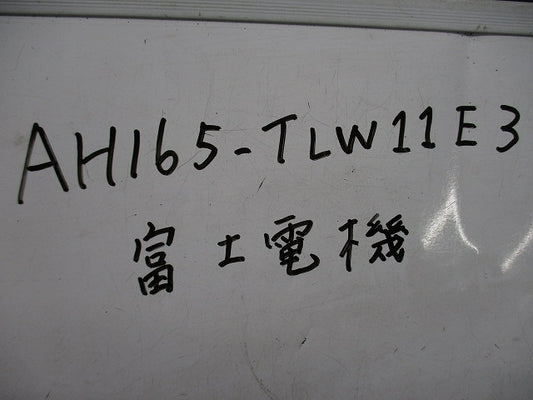 AH165-TLW11E3
富士電機